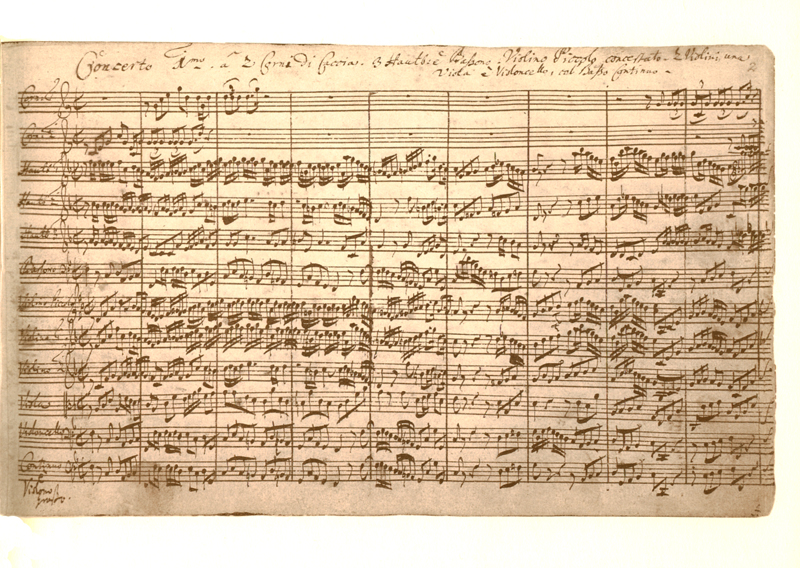 Concerto 1mo. à 2 Corni di Caccia. 3 Hautb: è Bassono. Violino Piccolo concertato. 2 Violini una
Viola è Violoncello, col Basso Continuo.
Corno
Corno 2
Hautb
Hautb 2
Hautb
Bassono
Violino Piccolo
Violino 1
Violino 2
Viola
Violoncello
Continuo
Violono
grosso.